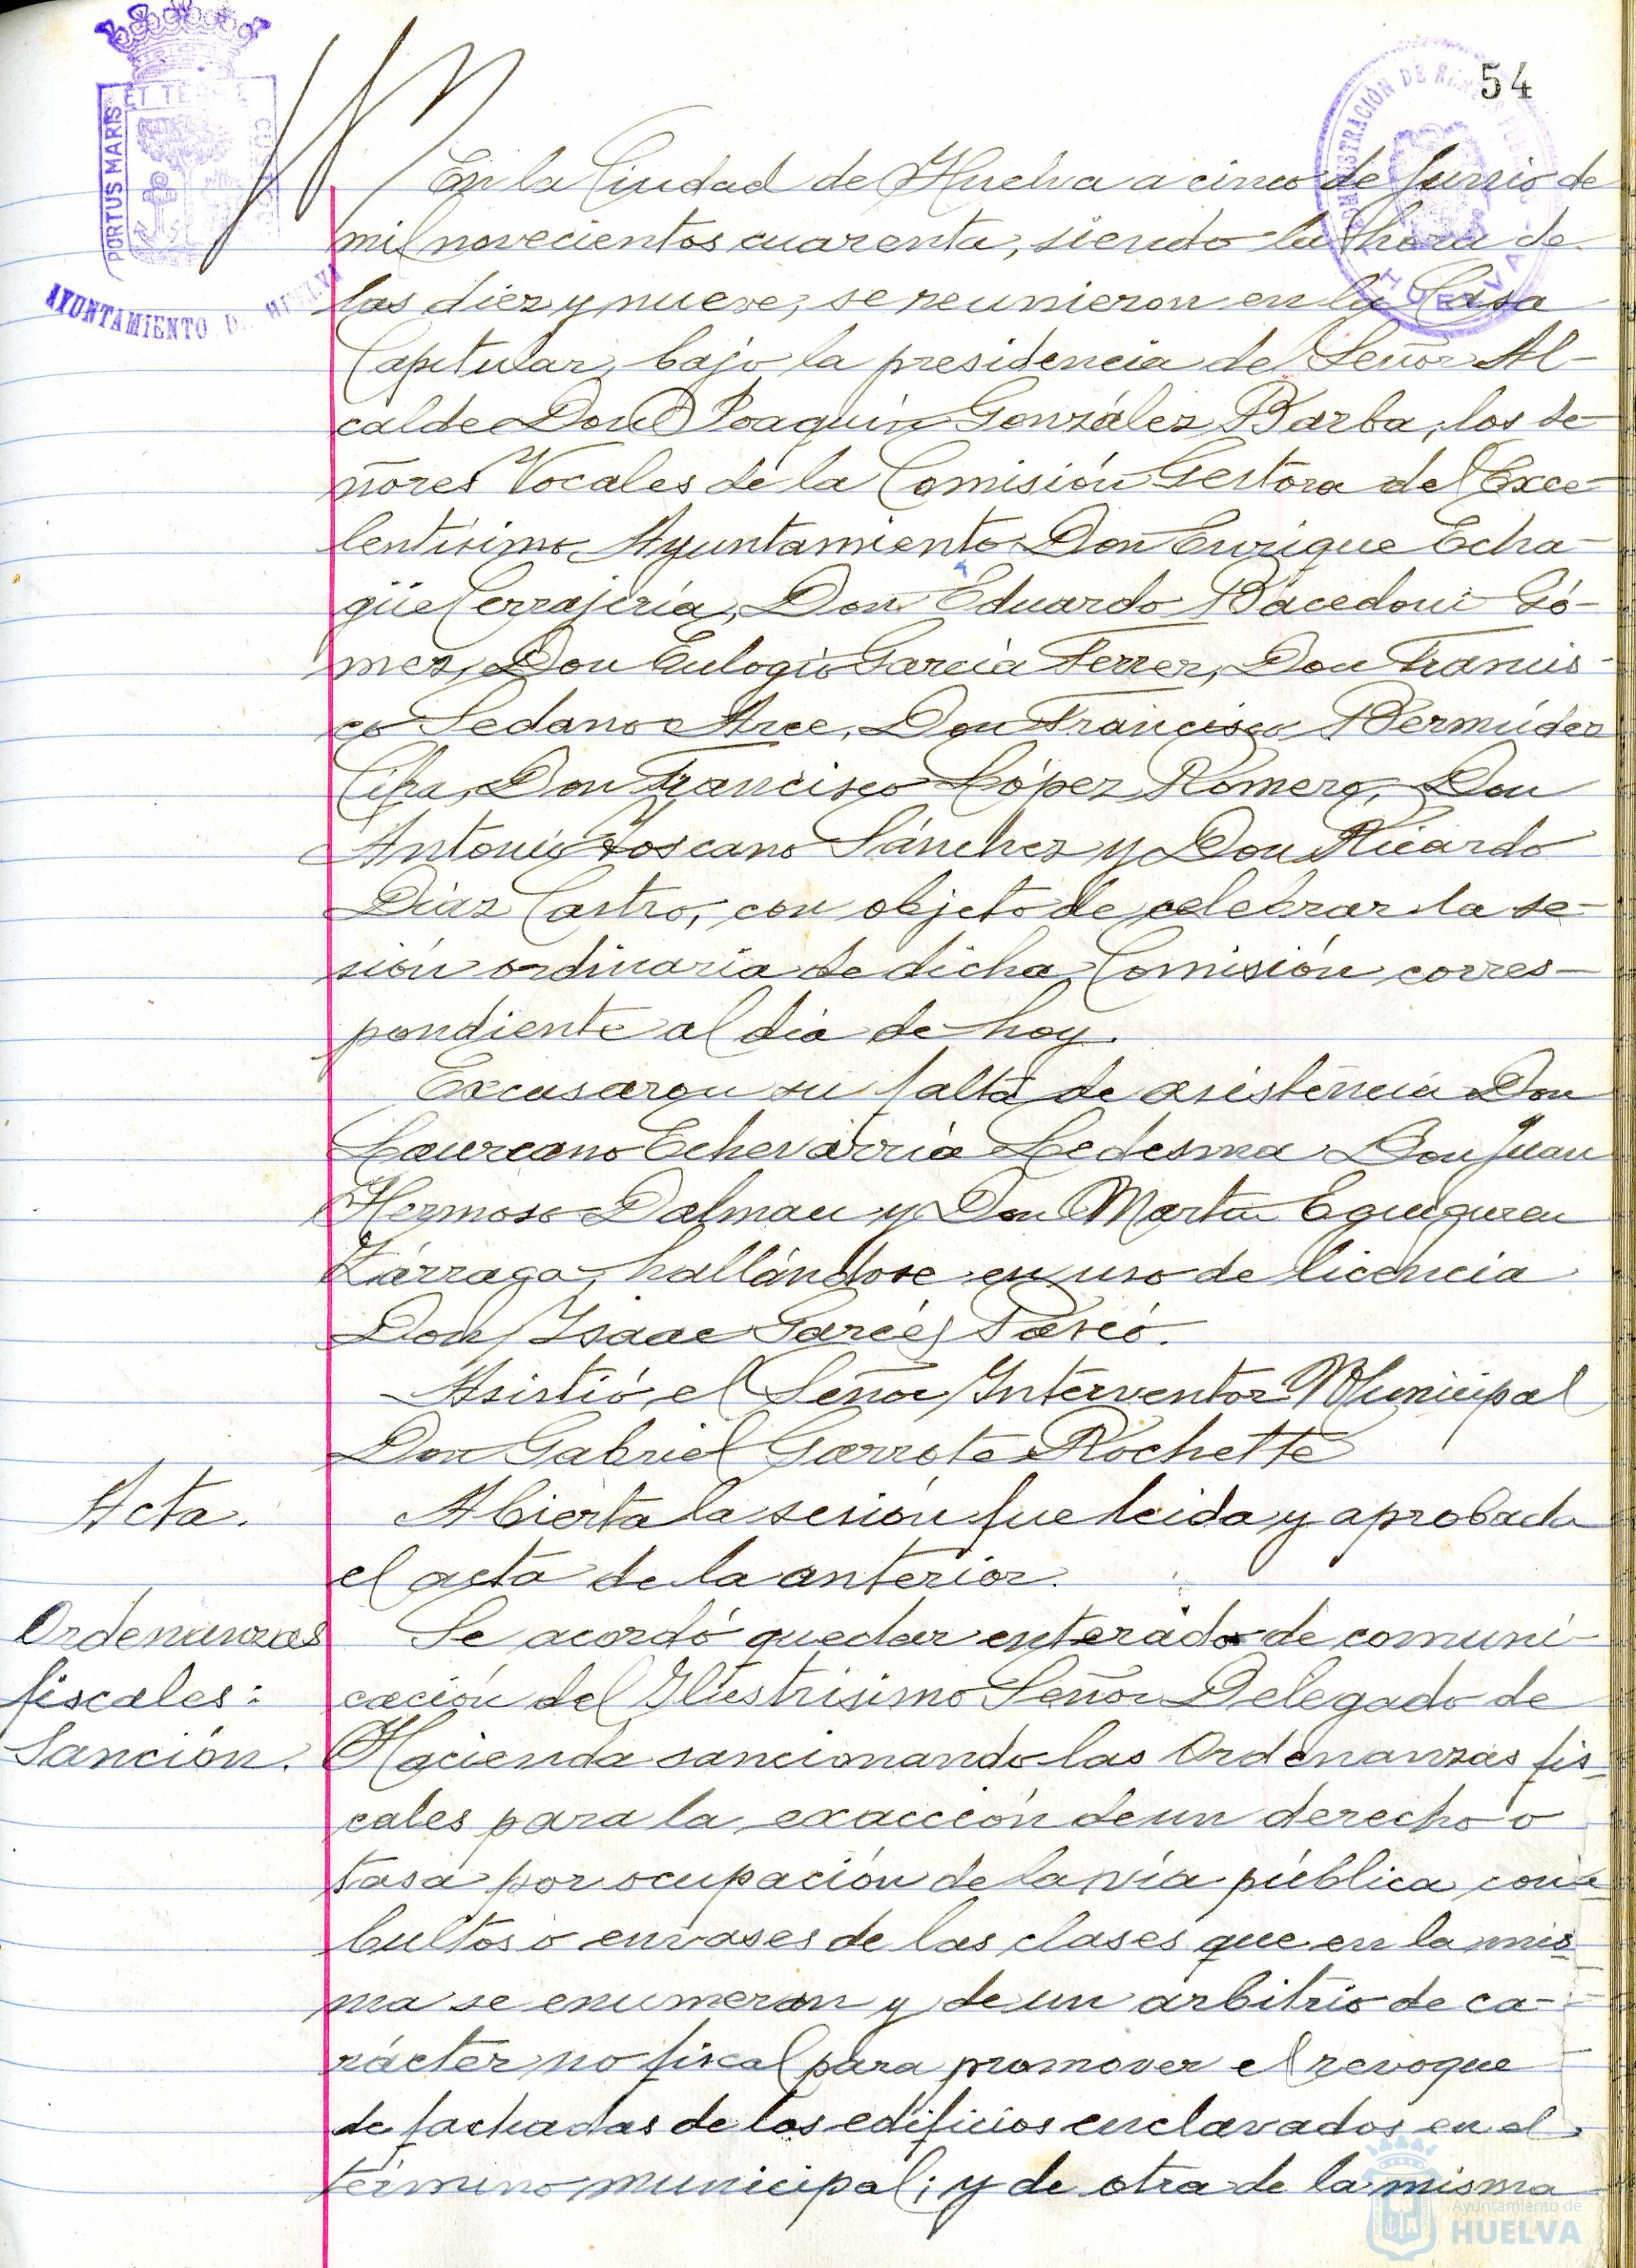 54
PORTUS MARIS
ET TERRE
AYUNTAMIENTO DE HUELVA
HUELVA
En la Ciudad de Huelva a cinco de Junio de
mil novecientos cuarenta, siendo la hora de
las diez y nueve, se reunieron en la Casa
Capitular, bajo la presidencia del Señor Al-
calde Don Joaquín González Barba, los se-
ñores Vocales de la Comisión Gestora del Exce-
lentísimo Ayuntamiento Don Enrique Echa-
güe Cerrajería, Don Eduardo Bacedoni Gó-
mez, Don Eulogio García Ferrer, Don Francis-
co Sedano Arce, Don Francisco Bermúdez
Don Francisco López Romero, Don
Antonio Toscano Sánchez y Don Ricardo
Díaz Castro, con objeto de celebrar la se-
sión ordinaria de dicha Comisión corres-
pondiente al día de hoy.
Excusaron su falta de asistencia Don
Laureano Echevarría Ledesma, Don Juan
Hermoso Dalmau y Don Martín Eguiguren
Zárraga, hallándose en uso de licencia
Don Isaac Garcés
Asistió el Señor Interventor Municipal
Don Gabriel Garrote Rochette
Acta. Abierta la sesión fue leida y aprobada
el acta de la anterior.
Ordenanzas Se acordó quedar enterado de comuni-
fiscales: cación del Ilustrísimo Señor Delegado de
Sanción. Hacienda sancionando las Ordenanzas fis-
cales para la exacción de un derecho o
tasa por ocupación de la vía pública con
bultos o envases de las clases que en la mis-
ma se enumeran y de un arbitrio de ca-
rácter no fiscal para promover el revoque
de fachadas de los edificios enclavados en el
término municipal; y de otra de la misma
Ayuntamiento de
HUELVA